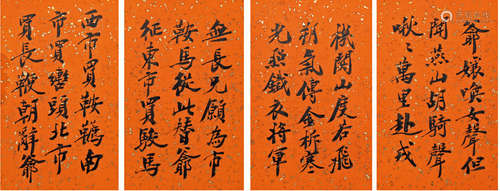 爺孃喚女聲但
聞燕山胡騎聲
啾〻萬里赴戎
機關山度若飛
朔氣傳金柝寒
光照鐵衣將軍
無長兄願為市
鞍馬從此替爺
征東市買駿馬
西市買鞍韉南
市買轡頭北市
買長鞭朝辭爺